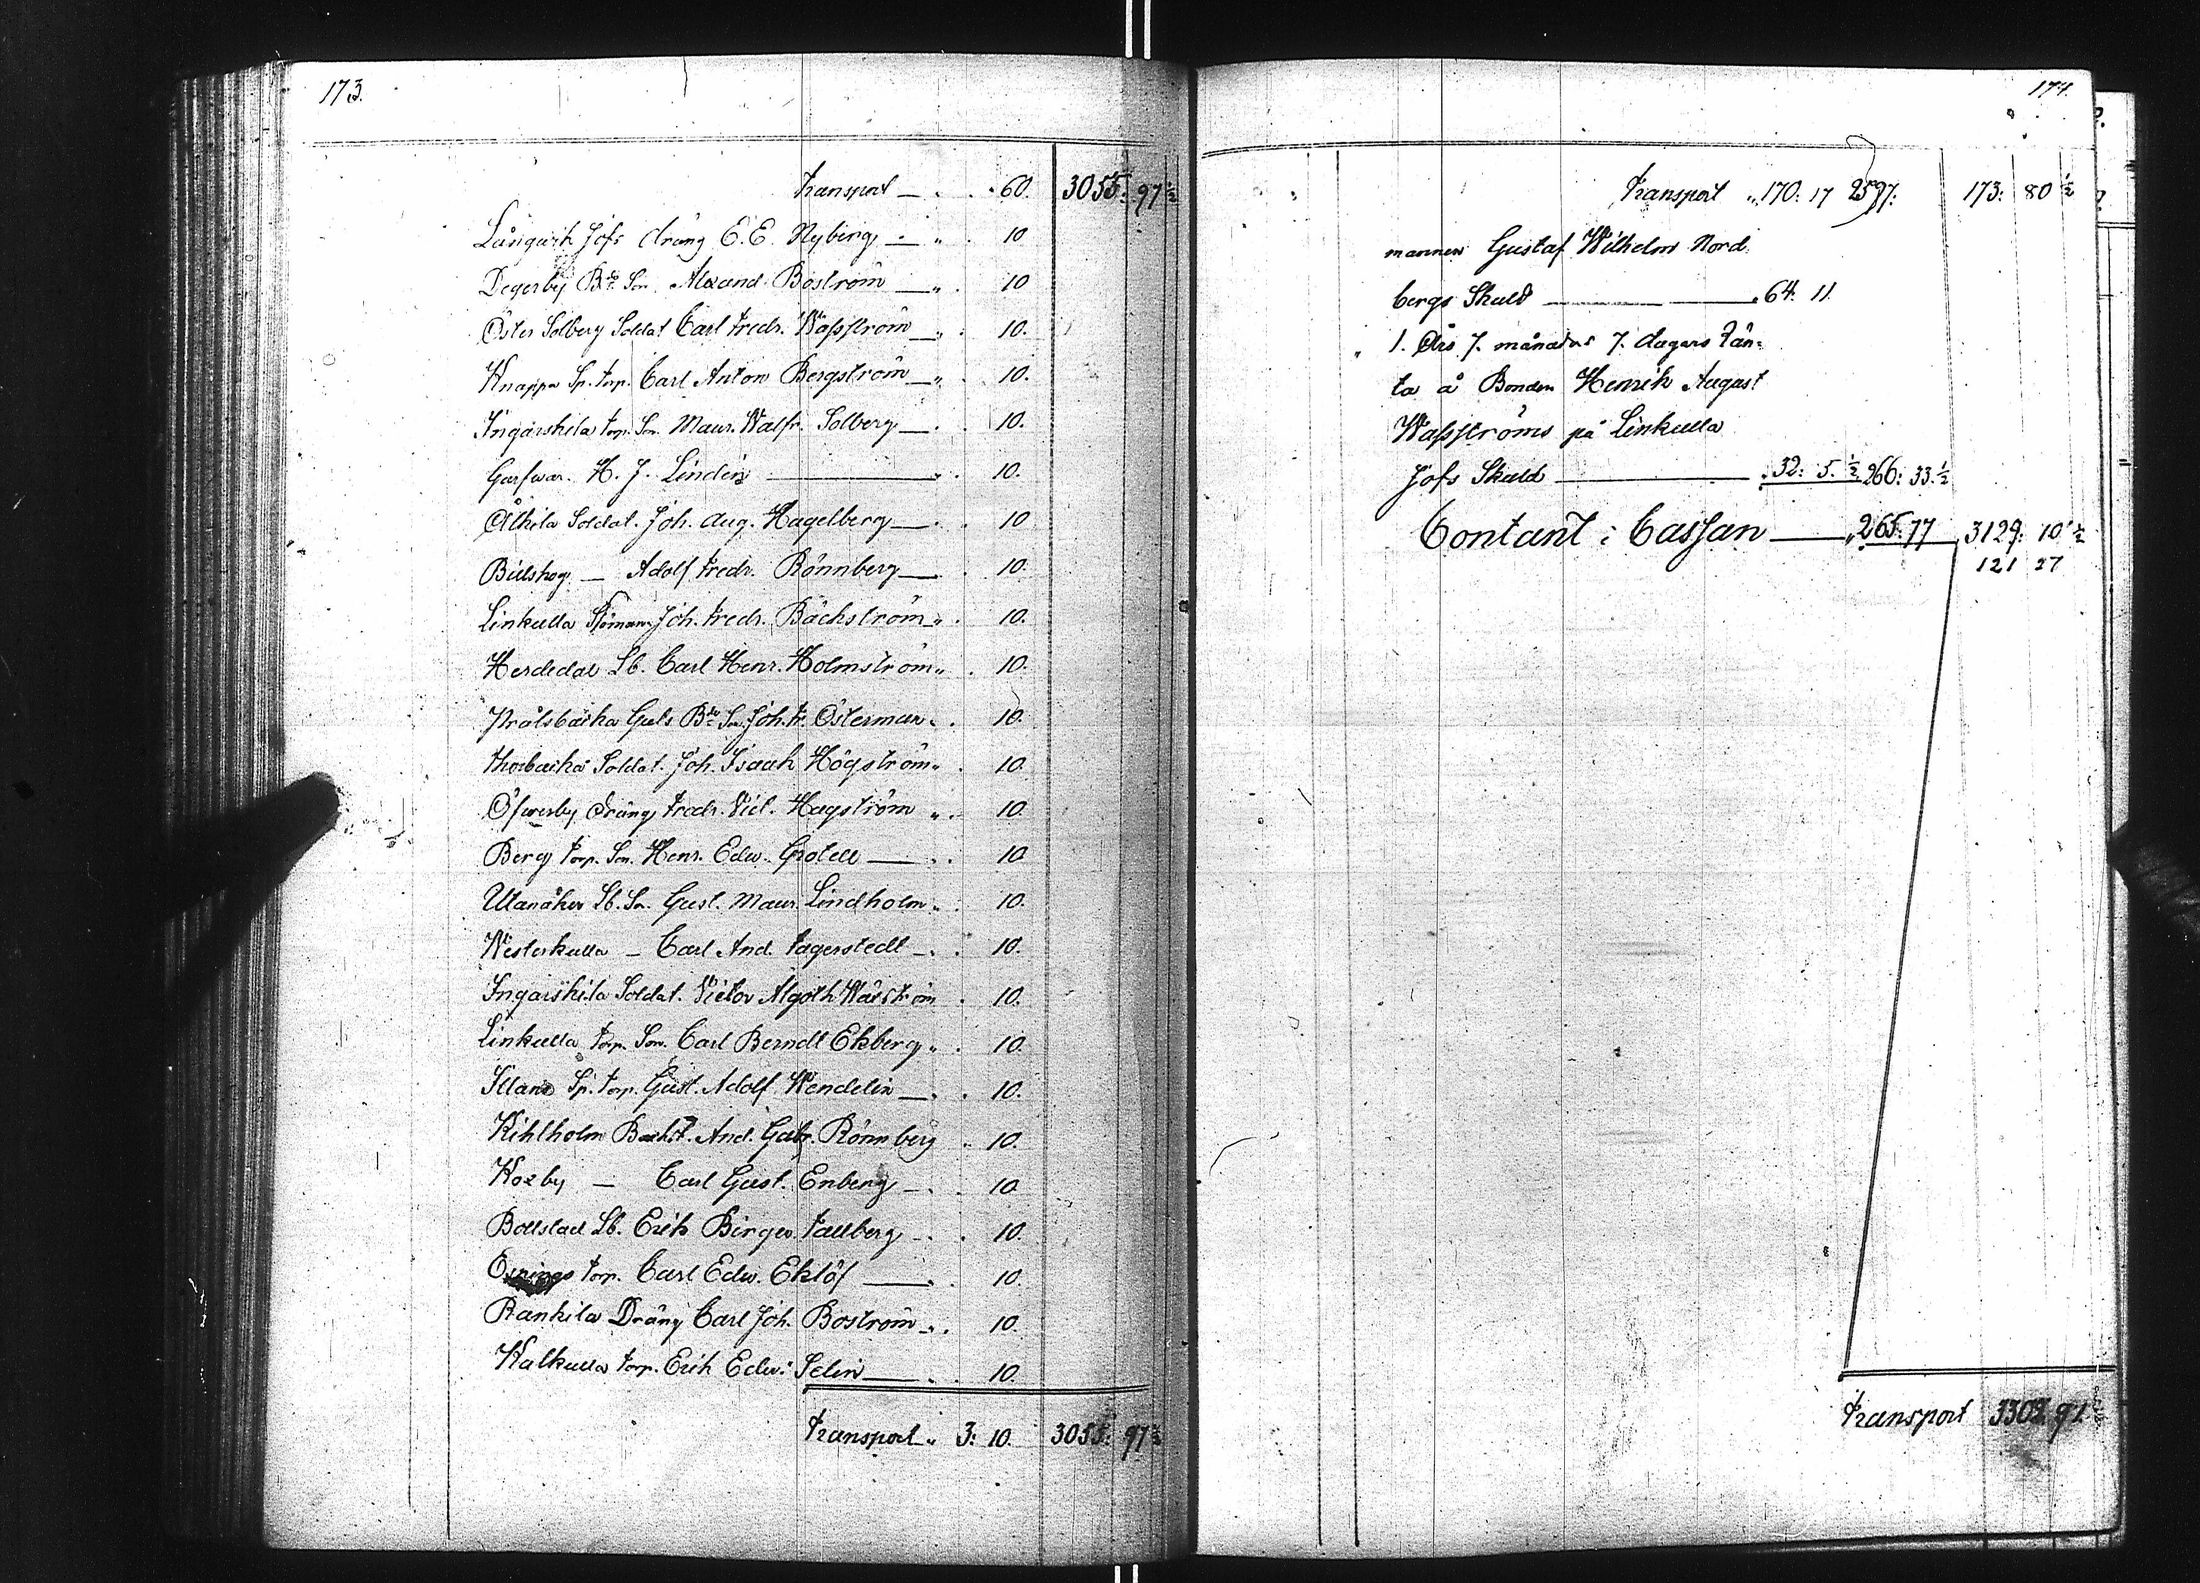 173.
Transport — 60. 3055: 97 ½
Långwik Jofs dräng E. E. Nyberg — " 10
Degerby Bde Son Alexand. Boström — " 10
Öster Solberg Soldat Carl Fredr. Wasström — " 10.
Knappe Sp. torp. Carl Anton Bergström — " 10.
Ingarskila torp. Son Maur. Walfr. Solberg — 10.
Garfvar. H. J. Lindén — " 10.
Åkila Soldat. Joh. Aug. Hagelberg — 10
Bülskog — Adolf Fredr. Rönnberg — 10.
Linkulla Sjöman Joh. Fredr. Bäckström " 10.
Herdedal Lb. Carl Henr. Holmström " 10.
Guls Bde Son Joh. Fr. Österman " 10.
Thorbacka Soldat. Joh. Isaak Högström " 10.
Öfverby Dräng Fredr. Vict. Hagström " 10.
Berg torp. Son. Henr. Edw. Grotell — 10
Utanåker Lb. Son. Gust. Maur. Lindholm " 10.
Westerkulla — Carl And. Fagerstedt — 10.
Ingarskila Soldat. Victor Algoth Wärström 10.
Linkulla torp. Son. Carl Berndt Ekberg " 10.
Sp. torp. Gust. Adolf Wendelin — 10.
Kihlholm Backst. And. Gabr. Rönnberg " 10.
Kozby — Carl Gust. Enberg — 10
Bollstad Lb. Erik Birger Tallberg — 10.
torp. Carl Edw. Eklöf — 10.
Rankila Dräng Carl Joh. Boström " 10.
Kalkulla torp. Erik Edw. Selin — 10.
Transport " 3: 10. 3055: 97 ½
174.
Transport " 170: 17 2597: 173: 80 ½
mannen Gustaf Wilhelm Nord
bergs Skuld — 64. 11.
" 1. Års 7. månaders 7. dagars Rän-
ta å Bonden Henrik August
Wasströms på Linkulla
Jofs Skuld — 32: 5. ½ 266: 33. ½
Contant i Cassan — " 265: 77 3129: 10 ½
121 27
Transport 3302. 91.